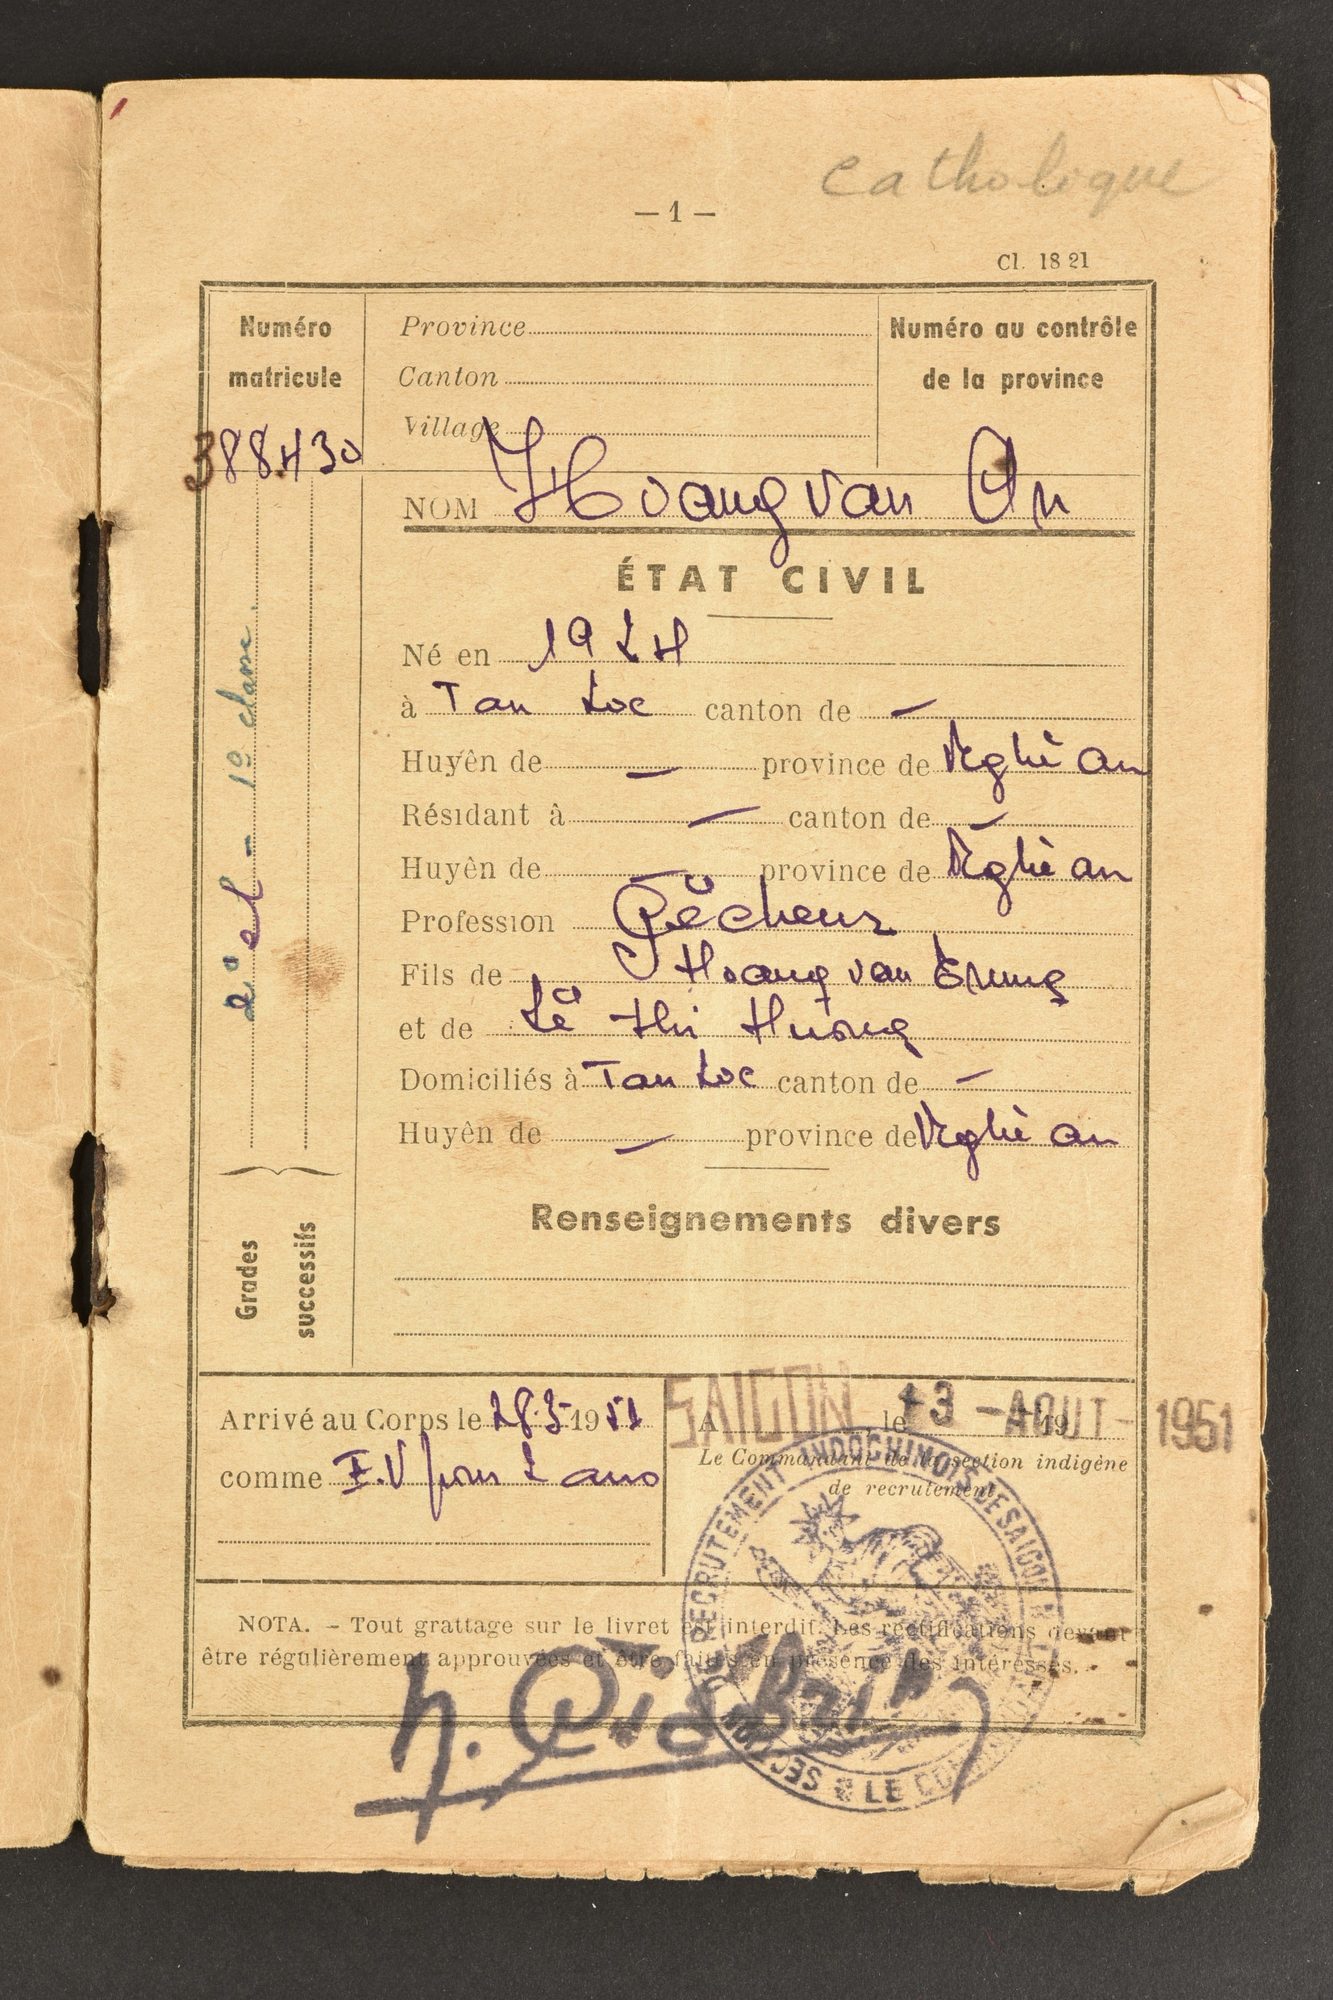 catholique
— 1 —
Cl. 18 21
Numéro
matricule
388.430
Province
Canton
Village
Numéro au contrôle
de la province
NOM Hoang van An
ÉTAT CIVIL
Né en 1924
à Tan Loc canton de —
Huyên de — province de Nghê an
Résidant à — canton de —
Huyên de — province de Nghê an
Profession Pêcheur
Fils de Hoang van Trung
et de Lê thi Huong
Domiciliés à Tan Loc canton de —
Huyên de — province de Nghê an
Renseignements divers
2° cl - 1° classe
Grades
successifs
Arrivé au Corps le 28.5 1951
comme E.V pour 2 ans
SAIGON
A , le 19
13 -AOUT- 1951
Le Commandant de la section indigène
de recrutement
SECTION DE RECRUTEMENT INDOCHINOIS DE SAIGON
LE COMMANDANT
NOTA. - Tout grattage sur le livret est interdit. Les rectifications devant
être régulièrement approuvées et être faites en présence des intéressés.